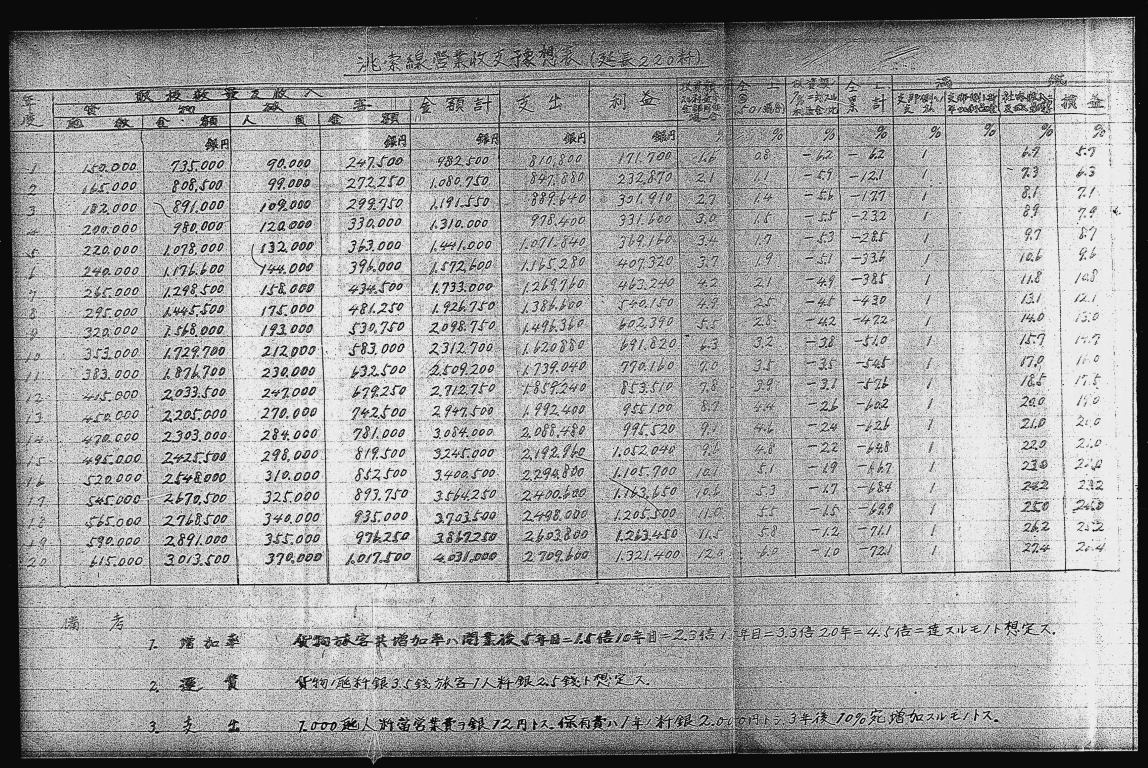 洮索線營業收支豫想表(延長220粁)
年度 取扱數量及收入 支出 利益 滿鐵
貨物 旅客 金額計 損益
噸數 金額 人員 金額
銀円 銀円 銀円 銀円 銀円 % % % % % % %
1 150.000 735.000 90.000 247.500 982.500 810.800 171.700 1.6 0.8 -6.2 -6.2 1 6.7 5.7
2 165.000 808.500 99.000 272.250 1.080.750 847.880 232.870 2.1 1.1 -5.9 -12.1 1 7.3 6.3
3 182.000 891.000 109.000 299.750 1.191.550 889.640 301.910 2.7 1.4 -5.6 -17.7 1 8.1 7.1
4 200.000 980.000 120.000 330.000 1.310.000 978.400 331.600 3.0 1.5 -5.5 -23.2 1 8.9 7.9
5 220.000 1.078.000 132.000 363.000 1.441.000 1.071.840 369.160 3.4 1.7 -5.3 -28.5 1 9.7 8.7
6 240.000 1.176.600 144.000 396.000 1.572.600 1.165.280 407.320 3.7 1.9 -5.1 -33.6 1 10.6 9.6
7 265.000 1.298.500 158.000 434.500 1.733.000 1.269.760 463.240 4.2 2.1 -4.9 -38.5 1 11.8 10.8
8 295.000 1.445.500 175.000 481.250 1.926.750 1.386.600 540.150 4.9 2.5 -4.5 -43.0 1 13.1 12.1
9 320.000 1.568.000 193.000 530.750 2.098.750 1.496.360 602.390 5.5 2.8 -4.2 -47.2 1 14.0 13.0
10 353.000 1.729.700 212.000 583.000 2.312.700 1.620.880 691.820 6.3 3.2 -3.8 -51.0 1 15.7 14.7
11 383.000 1.876.700 230.000 632.500 2.509.200 1.739.040 770.160 7.0 3.5 -3.5 -54.5 1 17.0 16.0
12 415.000 2.033.500 247.000 679.250 2.712.750 1.859.240 853.510 7.8 3.9 -3.1 -57.6 1 18.5 17.5
13 450.000 2.205.000 270.000 742.500 2.947.500 1.992.400 955.100 8.7 4.4 -2.6 -60.2 1 20.0 19.0
14 470.000 2.303.000 284.000 781.000 3.084.000 2.088.480 995.520 9.1 4.6 -2.4 -62.6 1 21.0 20.0
15 495.000 2.425.500 298.000 819.500 3.245.000 2.192.960 1.052.040 9.6 4.8 -2.2 -64.8 1 22.0 21.0
16 520.000 2.548.000 310.000 852.500 3.400.500 2.294.800 1.105.700 10.1 5.1 -1.9 -66.7 1 23.0 22.0
17 545.000 2.670.500 325.000 893.750 3.564.250 2.400.600 1.163.650 10.6 5.3 -1.7 -68.4 1 24.2 23.2
18 565.000 2.768.500 340.000 935.000 3.703.500 2.498.000 1.205.500 11.0 5.5 -1.5 -69.9 1 25.0 24.0
19 590.000 2.891.000 355.000 976.250 3.867.250 2.603.800 1.263.450 11.5 5.8 -1.2 -71.1 1 26.2 25.2
20 615.000 3.013.500 370.000 1.017.500 4.031.000 2.709.600 1.321.400 12.0 6.0 -1.0 -72.1 1 27.4 26.4
備考
1. 增加率 貨物旅客共增加率ハ開業後5年目=1.5倍10年目=2.3倍15年目=3.3倍20年=4.5倍ニ達スルモノト想定ス.
2. 運賃 貨物1噸粁銀3.5錢旅客1人粁銀2.5錢ト想定ス.
3. 支出 1.000噸人粁當營業費ヲ銀12円トス.保有費ハ1年1粁銀2.000円トシ3年後10%宛增加スルモノトス.